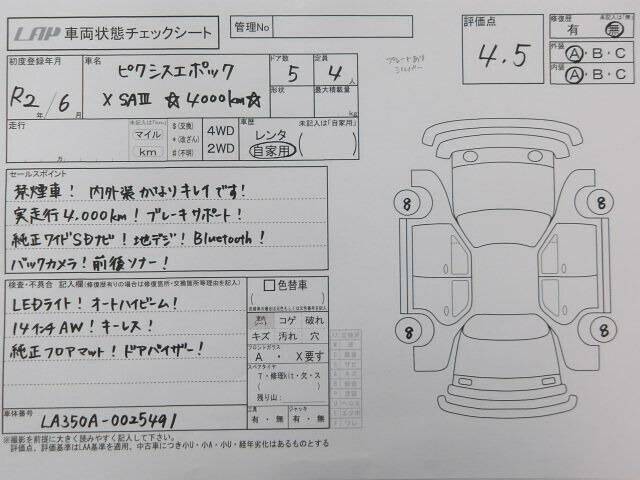 LAP 車両状態チェックシート
管理No
評価点
4.5
修復歴
未記入は「無」
有 ・ 無
外装 A・B・C
内装 A・B・C
初度登録年月
R2年/6月
車名
ピクシスエポック
X SAⅢ ☆4000km☆
ドア数
5
定員
4人
形状
最大積載量
kg
走行
万
未記入は「km」
マイル
km
$(交換)
*(改ざん)
#(不明)
4WD
2WD
車歴
未記入は「自家用」
レンタ
自家用
セールスポイント
禁煙車! 内外装かなりキレイです!
実走行4.000km! ブレーキサポート!
純正ワイドSDナビ! 地デジ! Bluetooth!
バックカメラ! 前後ソナー!
検査・不具合 記入欄(修復歴有りの場合は修復箇所・交換箇所等理由を記入)
LEDライト! オートハイビーム!
14インチAW! キーレス!
純正フロアマット! ドアバイザー!
色替車
車内
シート
コゲ 破れ
キズ 汚れ 穴
フロントガラス
A ・ X要す
スペアタイヤ
T・修理kit・欠・ス
残り山:
工具
有 ・ 無
ジャッキ
有 ・ 無
車体番号
LA350A-0025491
※撮影を前提に大きく読みやすく記入して下さい。
評価点、評価基準はLAA基準を適用、中古車につき小U・小A・小U・経年劣化はあるものとする
8
8
8
8